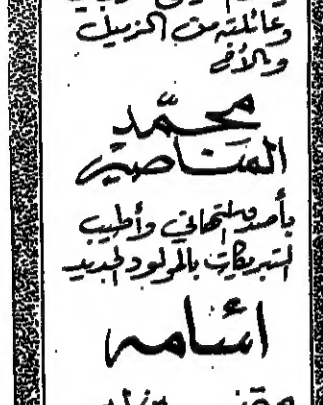 وعائلته من الزميل
والأخ
محمّد
المناصير
بأصدق التهاني وأطيب
التبريكات بالمولود الجديد
اسامه